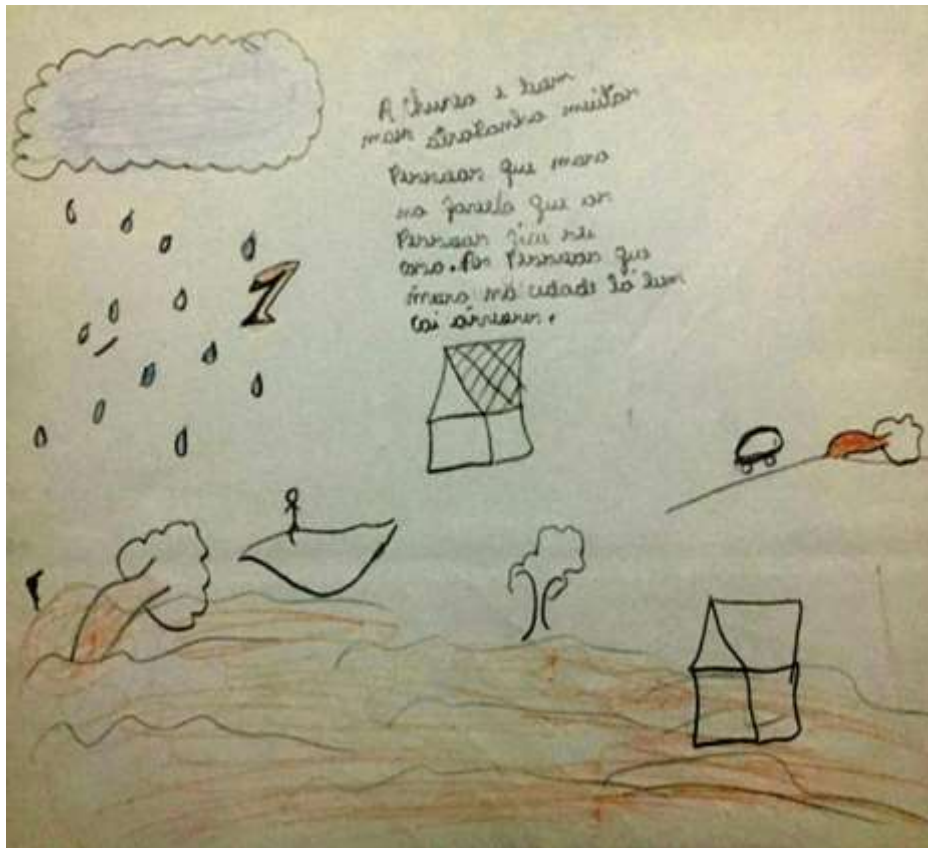 A Chuva e bem
mas atrapanha muitas
Pessoas que mora
na favela que as
Pessoas fica se
casa. As Pessoas que
mora na cidade lá tem
cai árvores.